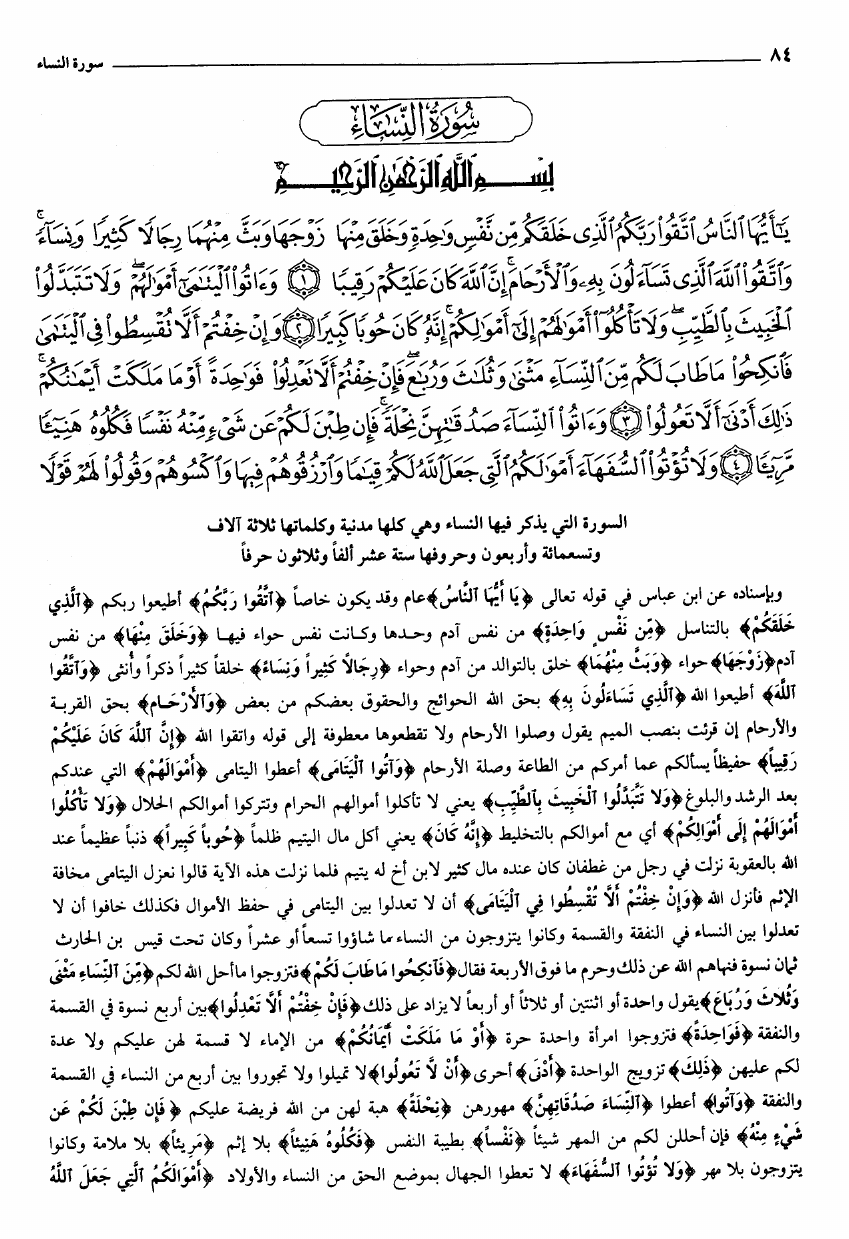 ٨٤ سورة النساء
سُورَةُ النِّسَاءِ
بِسْمِ ٱللَّهِ ٱلرَّحْمَٰنِ ٱلرَّحِيمِ
يَٰٓأَيُّهَا ٱلنَّاسُ ٱتَّقُوا۟ رَبَّكُمُ ٱلَّذِى خَلَقَكُم مِّن نَّفْسٍ وَٰحِدَةٍ وَخَلَقَ مِنْهَا زَوْجَهَا وَبَثَّ مِنْهُمَا رِجَالًا كَثِيرًا وَنِسَآءً ۚ
وَٱتَّقُوا۟ ٱللَّهَ ٱلَّذِى تَسَآءَلُونَ بِهِۦ وَٱلْأَرْحَامَ ۚ إِنَّ ٱللَّهَ كَانَ عَلَيْكُمْ رَقِيبًا ١ وَءَاتُوا۟ ٱلْيَتَٰمَىٰٓ أَمْوَٰلَهُمْ ۖ وَلَا تَتَبَدَّلُوا۟
ٱلْخَبِيثَ بِٱلطَّيِّبِ ۖ وَلَا تَأْكُلُوٓا۟ أَمْوَٰلَهُمْ إِلَىٰٓ أَمْوَٰلِكُمْ ۚ إِنَّهُۥ كَانَ حُوبًا كَبِيرًا ٢ وَإِنْ خِفْتُمْ أَلَّا تُقْسِطُوا۟ فِى ٱلْيَتَٰمَىٰ
فَٱنكِحُوا۟ مَا طَابَ لَكُم مِّنَ ٱلنِّسَآءِ مَثْنَىٰ وَثُلَٰثَ وَرُبَٰعَ ۖ فَإِنْ خِفْتُمْ أَلَّا تَعْدِلُوا۟ فَوَٰحِدَةً أَوْ مَا مَلَكَتْ أَيْمَٰنُكُمْ ۚ
ذَٰلِكَ أَدْنَىٰٓ أَلَّا تَعُولُوا۟ ٣ وَءَاتُوا۟ ٱلنِّسَآءَ صَدُقَٰتِهِنَّ نِحْلَةً ۚ فَإِن طِبْنَ لَكُمْ عَن شَىْءٍ مِّنْهُ نَفْسًا فَكُلُوهُ هَنِيٓـًٔا
مَّرِيٓـًٔا ٤ وَلَا تُؤْتُوا۟ ٱلسُّفَهَآءَ أَمْوَٰلَكُمُ ٱلَّتِى جَعَلَ ٱللَّهُ لَكُمْ قِيَٰمًا وَٱرْزُقُوهُمْ فِيهَا وَٱكْسُوهُمْ وَقُولُوا۟ لَهُمْ قَوْلًا
السورة التي يذكر فيها النساء وهي كلها مدنية وكلماتها ثلاثة آلاف
وتسعمائة وأربعون وحروفها ستة عشر ألفاً وثلاثون حرفاً
وبإسناده عن ابن عباس في قوله تعالى ﴿يَا أَيُّهَا ٱلنَّاسُ﴾ عام وقد يكون خاصاً ﴿ٱتَّقُوا رَبَّكُمُ﴾ أطيعوا ربكم ﴿ٱلَّذِي
خَلَقَكُمْ﴾ بالتناسل ﴿مِّن نَّفْسٍ وَاحِدَةٍ﴾ من نفس آدم وحدها وكانت نفس حواء فيها ﴿وَخَلَقَ مِنْهَا﴾ من نفس
آدم ﴿زَوْجَهَا﴾ حواء ﴿وَبَثَّ مِنْهُمَا﴾ خلق بالتوالد من آدم وحواء ﴿رِجَالاً كَثِيراً وَنِسَاءً﴾ خلقاً كثيراً ذكراً وأنثى ﴿وَٱتَّقُوا
ٱللَّهَ﴾ أطيعوا الله ﴿ٱلَّذِي تَسَاءَلُونَ بِهِ﴾ بحق الله الحوائج والحقوق بعضكم من بعض ﴿وَٱلْأَرْحَام﴾ بحق القربة
والأرحام إن قرئت بنصب الميم يقول وصلوا الأرحام ولا تقطعوها معطوفة إلى قوله واتقوا الله ﴿إِنَّ ٱللَّهَ كَانَ عَلَيْكُمْ
رَقِيباً﴾ حفيظاً يسألكم عما أمركم من الطاعة وصلة الأرحام ﴿وَآتُوا ٱلْيَتَامَى﴾ أعطوا اليتامى ﴿أَمْوَالَهُمْ﴾ التي عندكم
بعد الرشد والبلوغ ﴿وَلَا تَتَبَدَّلُوا ٱلْخَبِيثَ بِٱلطَّيِّبِ﴾ يعني لا تأكلوا أموالهم الحرام وتتركوا أموالكم الحلال ﴿وَلَا تَأْكُلُوا
أَمْوَالَهُمْ إِلَى أَمْوَالِكُمْ﴾ أي مع أموالكم بالتخليط ﴿إِنَّهُ كَانَ﴾ يعني أكل مال اليتيم ظلماً ﴿حُوباً كَبِيراً﴾ ذنباً عظيماً عند
الله بالعقوبة نزلت في رجل من غطفان كان عنده مال كثير لابن أخ له يتيم فلما نزلت هذه الآية قالوا نعزل اليتامى مخافة
الإثم فأنزل الله ﴿وَإِنْ خِفْتُمْ أَلَّا تُقْسِطُوا فِي ٱلْيَتَامَى﴾ أن لا تعدلوا بين اليتامى في حفظ الأموال فكذلك خافوا أن لا
تعدلوا بين النساء في النفقة والقسمة وكانوا يتزوجون من النساء ما شاؤوا تسعاً أو عشراً وكان تحت قيس بن الحارث
ثمان نسوة فنهاهم الله عن ذلك وحرم ما فوق الأربعة فقال ﴿فَٱنكِحُوا مَا طَابَ لَكُمْ﴾ فتزوجوا ما أحل الله لكم ﴿مِّنَ ٱلنِّسَاءِ مَثْنَى
وَثُلَاثَ وَرُبَاعَ﴾ يقول واحدة أو اثنتين أو ثلاثاً أو أربعاً لا يزاد على ذلك ﴿فَإِنْ خِفْتُمْ أَلَّا تَعْدِلُوا﴾ بين أربع نسوة في القسمة
والنفقة ﴿فَوَاحِدَةً﴾ فتزوجوا امرأة واحدة حرة ﴿أَوْ مَا مَلَكَتْ أَيْمَانُكُمْ﴾ من الإماء لا قسمة لهن عليكم ولا عدة
لكم عليهن ﴿ذَلِكَ﴾ تزويج الواحدة ﴿أَدْنَى﴾ أحرى ﴿أَنْ لَا تَعُولُوا﴾ لا تميلوا ولا تجوروا بين أربع من النساء في القسمة
والنفقة ﴿وَآتُوا﴾ أعطوا ﴿ٱلنِّسَاءَ صَدُقَاتِهِنَّ﴾ مهورهن ﴿نِحْلَةً﴾ هبة لهن من الله فريضة عليكم ﴿فَإِن طِبْنَ لَكُمْ عَن
شَيْءٍ مِنْهُ﴾ فإن أحللن لكم من المهر شيئاً ﴿نَفْساً﴾ بطيبة النفس ﴿فَكُلُوهُ هَنِيئاً﴾ بلا إثم ﴿مَرِيئاً﴾ بلا ملامة وكانوا
يتزوجون بلا مهر ﴿وَلَا تُؤْتُوا ٱلسُّفَهَاءَ﴾ لا تعطوا الجهال بموضع الحق من النساء والأولاد ﴿أَمْوَالَكُمُ ٱلَّتِي جَعَلَ ٱللَّهُ